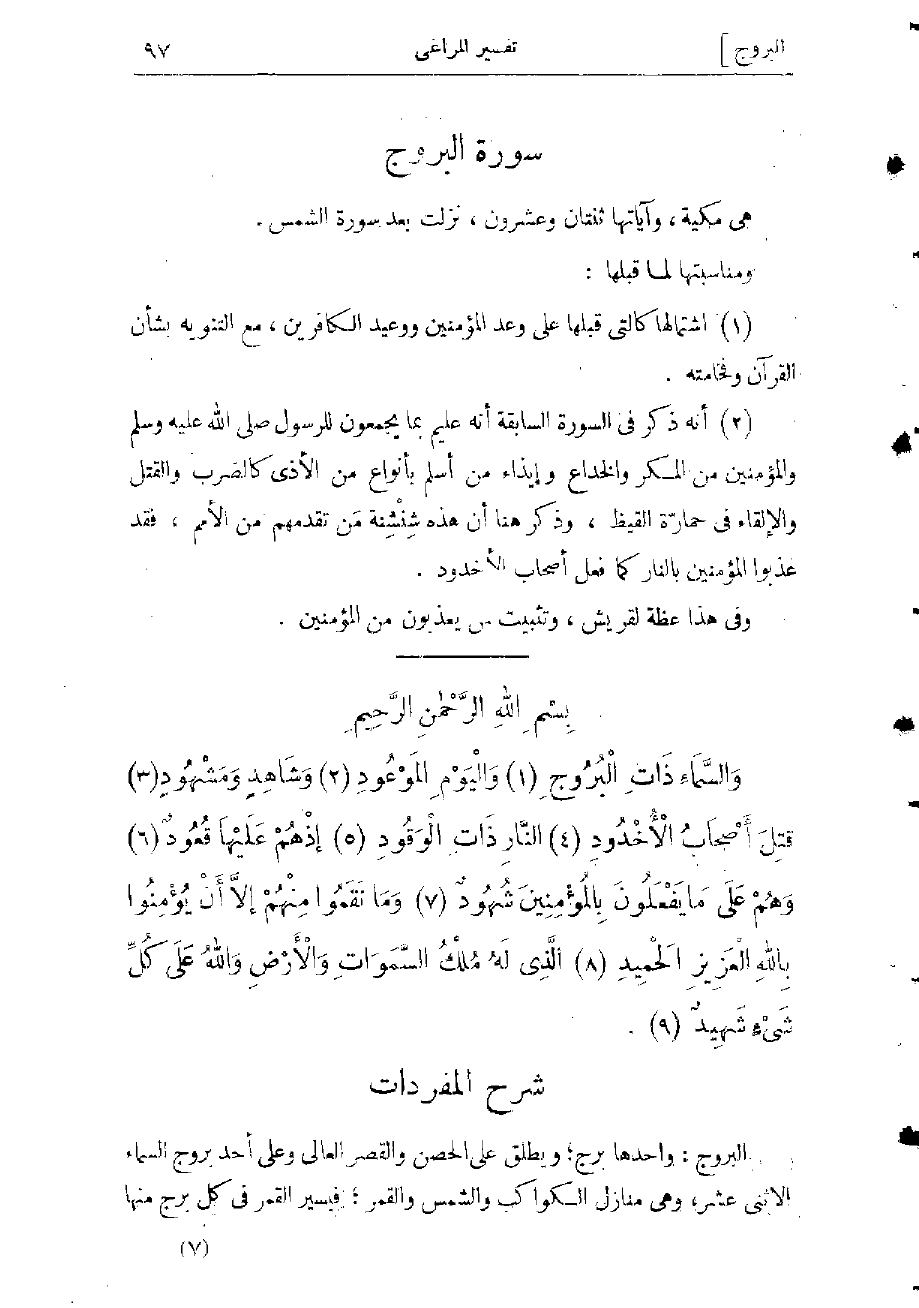 البروج ] تفسير المراغى ٩٧
سورة البروج
هى مكية ، وآياتها ثنتان وعشرون ، نزلت بعد سورة الشمس .
ومناسبتها لما قبلها :
(١) اشتمالها كالتى قبلها على وعد المؤمنين ووعيد الكافرين ، مع التنويه بشأن
القرآن وفخامته .
(٢) أنه ذكر فى السورة السابقة أنه عليم بما يجمعون للرسول صلى الله عليه وسلم
والمؤمنين من المكر والخداع وإيذاء من أسلم بأنواع من الأذى كالضرب والقتل
والإلقاء فى حمارّة القيظ ، وذكر هنا أن هذه شِنْشِنة مَن تقدمهم من الأمم ، فقد
عذبوا المؤمنين بالنار كما فعل أصحاب الأخدود .
وفى هذا عظة لقريش ، وتثبيت من يعذبون من المؤمنين .
بِسْمِ اللهِ الرَّحْمٰنِ الرَّحِيمِ
وَالسَّمَاءِ ذَاتِ الْبُرُوجِ (١) وَالْيَوْمِ الْمَوْعُودِ (٢) وَشَاهِدٍ وَمَشْهُودٍ (٣)
قُتِلَ أَصْحَابُ الْأُخْدُودِ (٤) النَّارِ ذَاتِ الْوَقُودِ (٥) إِذْ هُمْ عَلَيْهَا قُعُودٌ (٦)
وَهُمْ عَلَى مَا يَفْعَلُونَ بِالْمُؤْمِنِينَ شُهُودٌ (٧) وَمَا نَقَمُوا مِنْهُمْ إِلاَّ أَنْ يُؤْمِنُوا
بِاللهِ الْعَزِيزِ الْحَمِيدِ (٨) الَّذِى لَهُ مُلْكُ السَّمَوَاتِ وَالْأَرْضِ وَاللهُ عَلَى كُلِّ
شَىْءٍ شَهِيدٌ (٩) .
شرح المفردات
البروج : واحدها برج؛ ويطلق على الحصن والقصر العالى وعلى أحد بروج السماء
الاثنى عشر، وهى منازل الكواكب والشمس والقمر ؛ فيسير القمر فى كل برج منها
(٧)